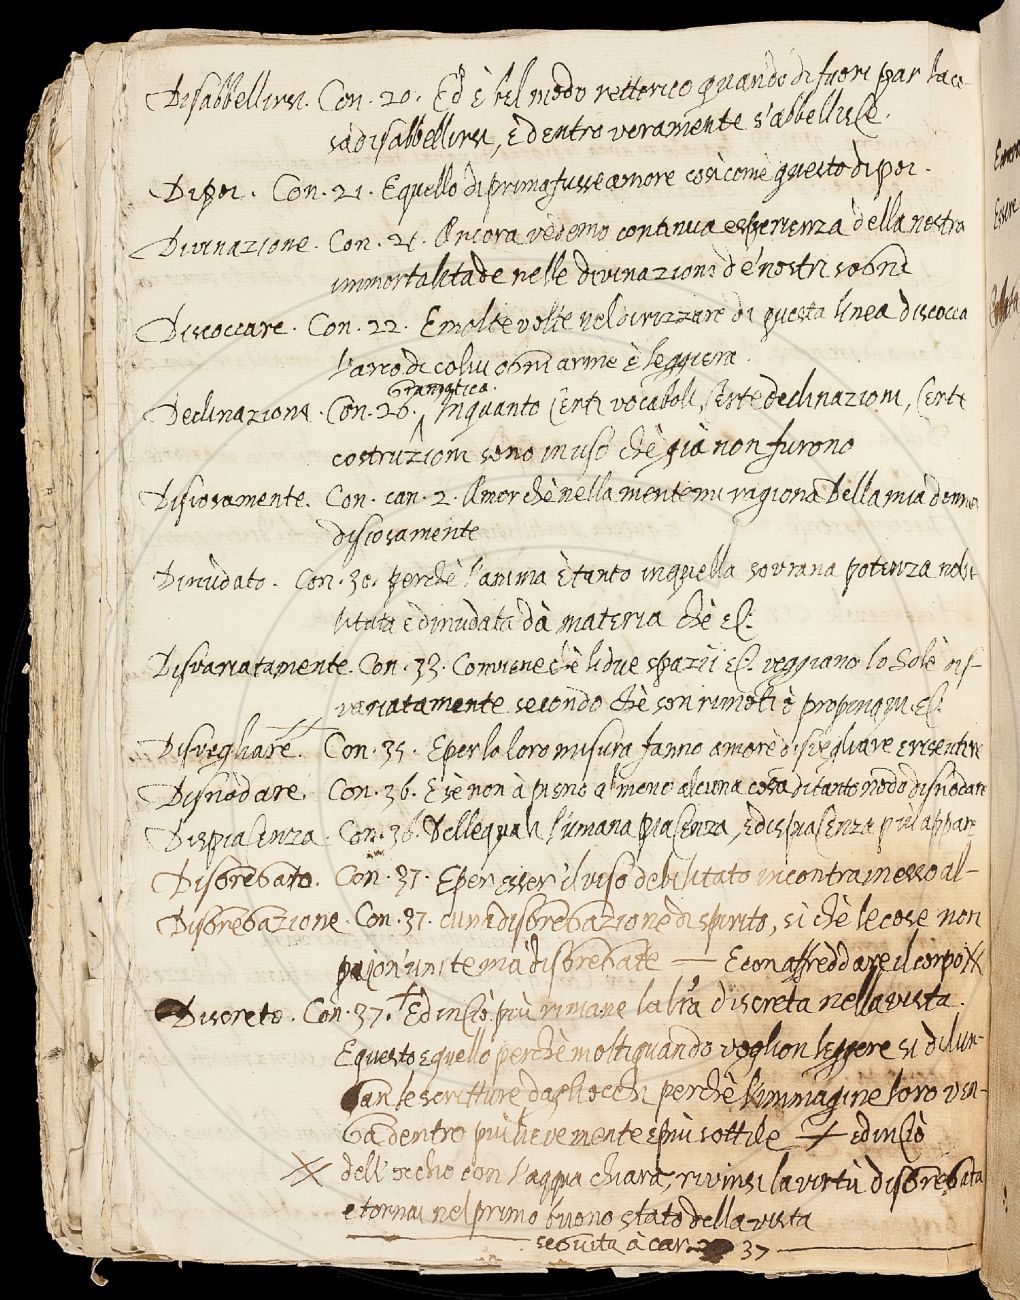 Disabbellirsi. Con. 20. Ed è bel modo rettorico quando di fuori par la co-
sa disabbellirsi, è dentro veramente s'abbellisce.
Di poi. Con. 21. E quello di prima fusse amore così come questo di poi.
Divinazione. Con. 21. Ancora vedemo continua esperienza della nostra
immortalitade nelle divinazioni de' nostri sogni
Discoccare. Con. 22. E molte volte nel dirizzare di questa linea discocca
l'arco di colui ogni arme è leggiera.
gramatica.
Declinazione. Con. 26. Inquanto certi vocaboli, certe declinazioni, certe
costruzioni sono in uso chè già non furono
Disiosamente. Con. can. 2. Amor chè nella mente mi ragiona Della mia donna
disiosamente
Dinudato. Con. 30. perchè l'anima è tanto in quella sovrana potenza nobi-
litata e dinudata dà materia chè &c.
Disvariatamente. Con. 33. Conviene chè li due spazii &c. veggiano lo Sole dis-
variatamente secondo chè son rimoti ò propinqui &c.
Disvegliare. Con. 35. E per lo loro misura fanno amore disvegliare e risentire
Disnodare. Con. 36. E sè non à pieno al meno alcuna cosa di tanto nodo disnodare
Dispiacenza. Con. 36. Nelle quali l'umana piacenza, è dispiacenza più appare
Disgregato. Con. 37. E per esser il viso debilitato incontra in esso al-
Disgregazione. Con. 37. cuna disgregazione di spirito, sì chè le cose non
paion unite mà disgregate — E con affreddare il corpo
Discreto. Con. 37. + Ed in ciò più rimane la l'ra discreta nella vista.
E questo è quello perchè molti quando voglion leggere si dilun-
gan le scritture dagli occhi perchè l'immagine loro ven-
ga dentro più lievemente e più sottile + ed in ciò
dell'occhio con l'aqqua chiara, rivinsi la virtù disgregata
e tornai nel primo buono stato della vista
seguita à car. 37